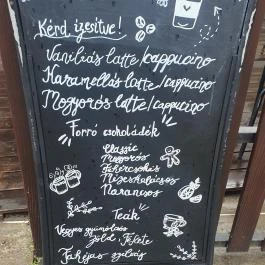 Kérd ízesítve!
Vaníliás latte/cappucino
Karamellás latte/cappucino
Mogyorós latte/cappucino
Forró csokoládék
Classic
Mogyorós
Fehércsokis
Mézeskalácsos
Narancsos
Teák
Vegyes gyümölcsös
Zöld Fekete
Fahéjas szilvás